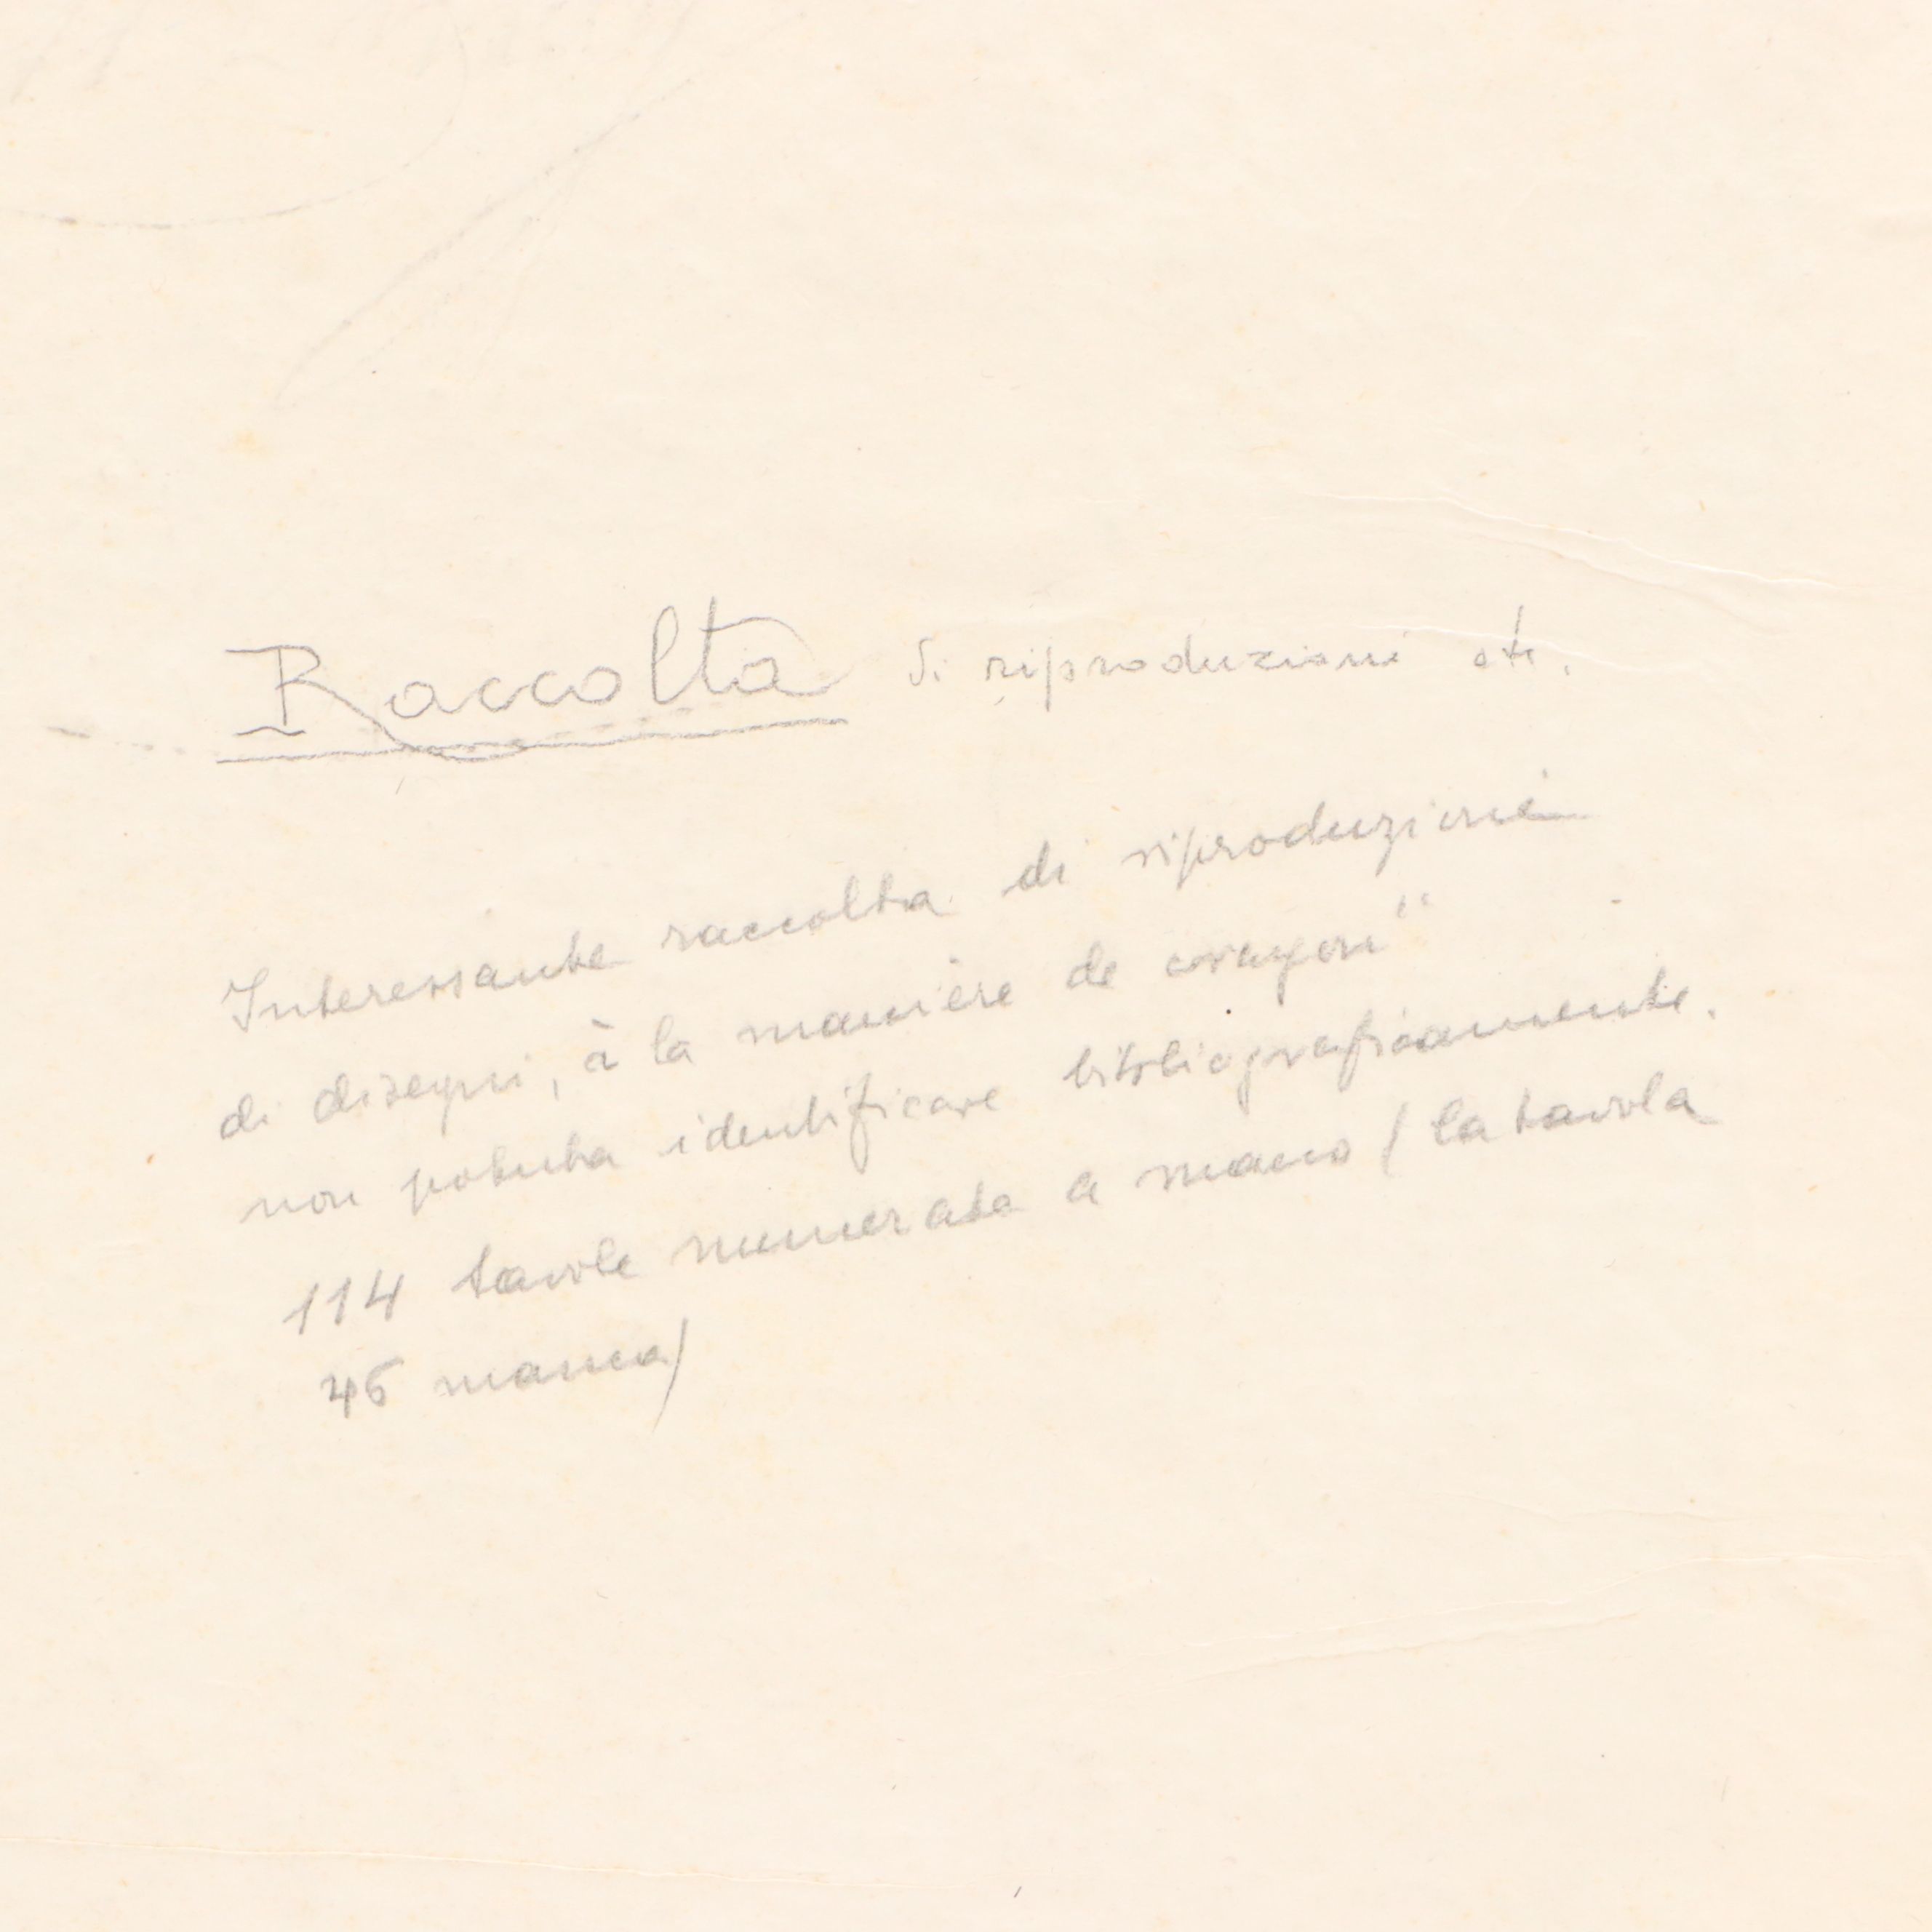 Raccolta di riproduzioni etc.
Interessante raccolta di riproduzioni
di disegni, à la manière de crayon"
non potuta identificare bibliograficamente.
114 tavole numerate a mano (la tavola
46 manca)